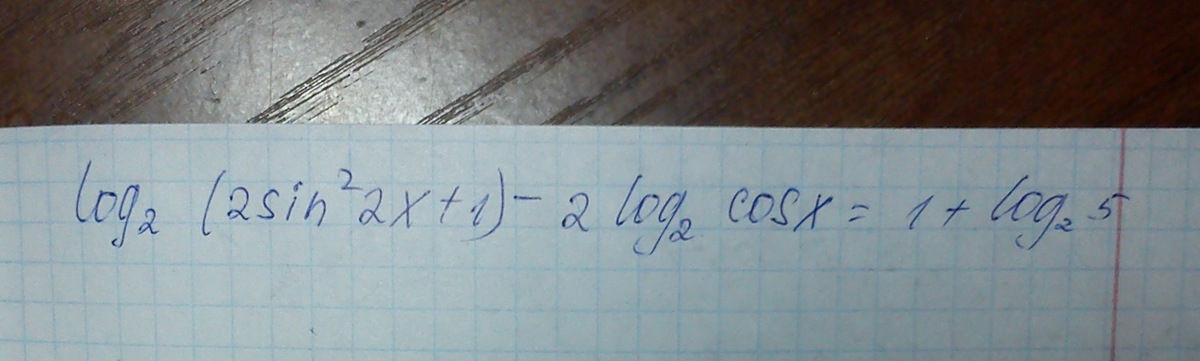 log₂ (2sin²2x+1) - 2 log₂ cosx = 1 + log₂5